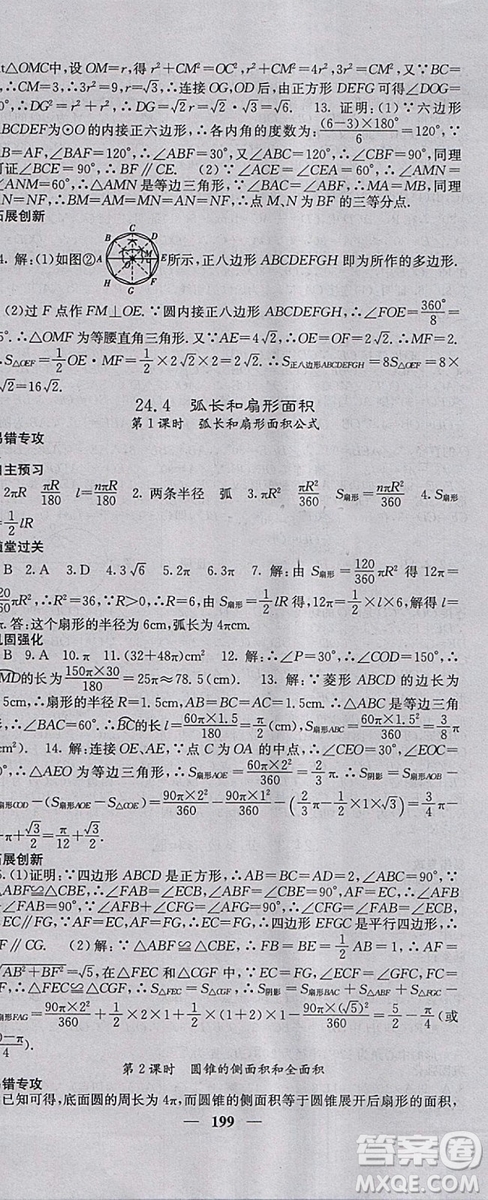 t△OMC中,设 OM=r,得 r²+CM²=OC²,r²+CM²=4r²,又∵BC=
∴CM=3,∴r²+9=4r²,∴r=√3.连接 OG,OD,由正方形 DEFG 可得
=OG,∴DG=√2r=√2·√3=√6. 13. 证明:(1)∵六边形
ABCDEF 为⊙O 的内接正六边形,∴各内角的度数为:(6-3)×180°/6=120°,∵
B=AF,∠BAF=120°,∴∠ABF=30°,又∠ABC=120°,∴∠FBC=90°,同理
可证∠BCE=90°,∴BF∥CE. (2)∵∠ACE=60°,∠ABF=90°,∴∠AMN=
∠ANM=60°,∴△AMN 是等边三角形,∴AM=MN,又∵MA=MB,同理
∴BM=MN=NF,∴M,N 为 BF 的三等分点.
拓展创新
4. 解:(1)如图② B C D A E H G F 所示,正八边形 ABCDEFGH 即为所作的多边形.
(2)过 F 点作 FM⊥OE.∵圆内接正八边形 ABCDEFGH,∴∠FOE=360°/8
=45°,∴△OMF 为等腰直角三角形,∵OF=2√2,∴FM²+OM²=OF²,∴MF=2.
∴S△OEF=1/2OE·MF=1/2×2√2×2=2√2,∴S正八边形ABCDEFGH=8S△OEF=8
√2=16√2.
24.4 弧长和扇形面积
第1课时 弧长和扇形面积公式
易错专攻
自主预习
2πR πR/180 l=nπR/180 2. 两条半径 弧 3. πR² πR²/360 S扇形=nπR²/360 4. S扇形
=1/2lR
随堂过关
B 2. A 3. D 4. 3√6 5. 2π 6. 3π 7. 解:由 S扇形=120/360πR² 得 12π=
πR²,∴R²=36,∵R>0,∴R=6,由 S扇形=1/2lR 得 12π=1/2×l×6,解得
4π.答:这个扇形的半径为 6cm,弧长为 4πcm.
巩固强化
B 9. A 10. π 11. (32+48π)cm² 12. 解:∵∠P=30°,∴∠COD=150°,
MD的长度为150π×30/180=25π≈78.5(cm) 13. 解:∵菱形 ABCD 的边长为
.5cm,∴扇形的半径 R=1.5cm,AB=BC=AC=1.5cm,∴△ABC 为等边三角
形,∴∠BAC=60°.∴BC的长 l=60π×1.5/180=π/2(cm),S扇形ABC=60π×1.5²/360=3π/8
cm²) 14. 解:连接 OE、AE,∵点 C 为 OA 的中点,∴∠CEO=30°,∠EOC=
0°,∴△AEO 为等边三角形,∴S扇形AOE=60π×2²/360=2/3π,∴S阴影=S扇形AOB-
扇形COD-(S扇形AOE-S△COE)=90π×2²/360-90π×1²/360-(2/3π-1/2×1×√3)=3/4π-
π+√3/2=π/12+√3/2.
拓展创新
5. (1)证明:∵四边形 ABCD 是正方形,∴∠ABC=∠ABF=90°,AB=BC,
△ABF≌△CBE,∴∠FAB=∠ECB,∠ABF=∠CBE=90°,AF=EC,
∠AFB+∠FAB=90°,∵∠FAG=∠FAB+∠EAG=90°,∴∠EAG=∠AFB,
EC∥FG,∵AF=EC,AF=FG,∴EC=FG,∴四边形 EFGC 是平行四边形,∴
F∥CG. (2)解:∵△ABF≌△CBE,∴FB=BE=1/2AB=1,∴AF=
√AB²+BF²=√5,在△FEC 和△CGF 中,∵EC=GF,∠ECF=∠GFC,FC=
F,∴△FEC≌△CGF,∴S△FEC=S△CGF,∴S阴影=S扇形BAC+S△ABF+S△FGC-
扇形FAG=90π×2²/360+1/2×2×1+1/2×(1+2)×1-90π×(√5)²/360=5/2-
第2课时 圆锥的侧面积和全面积
易错专攻
已知可得,底面圆的周长为 4π,而圆锥的侧面积等于圆锥展开后扇形的面积,
199
答案圈
MXQE.COM